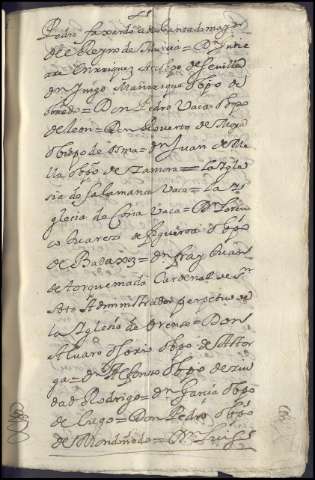 Pedro faxardo adelantado mayor
de el Reyno de Murcia = Dn Juhe
Enrriquez Arzbpo de Sevilla
dn Iñigo Manrrique Obpo de
Obiedo = Don Pedro Vaca Obpo
de leon = Don Roverto de Moya
Obispo de Osma = dn Juan de Me
lla Obpo de Zamora = La Ygle
sia de Salamanca Vaca = La Y
glesia de Coria Vaca = Dn Loren
co Suarez de figueroa Obpo
de Badaxoz = dn fray Juan
de torquemada Cardenal de Sn
Administrador perpetuo de
la Yglesia de Orense = Don
Alvaro Osorio Obpo de Astor
ga = dn Alfonso Obpo de ziu
dad Rodrigo = dn Garzia Obpo
de Lugo = Don Pedro Obpo
de Mondoñedo = Dn Luis